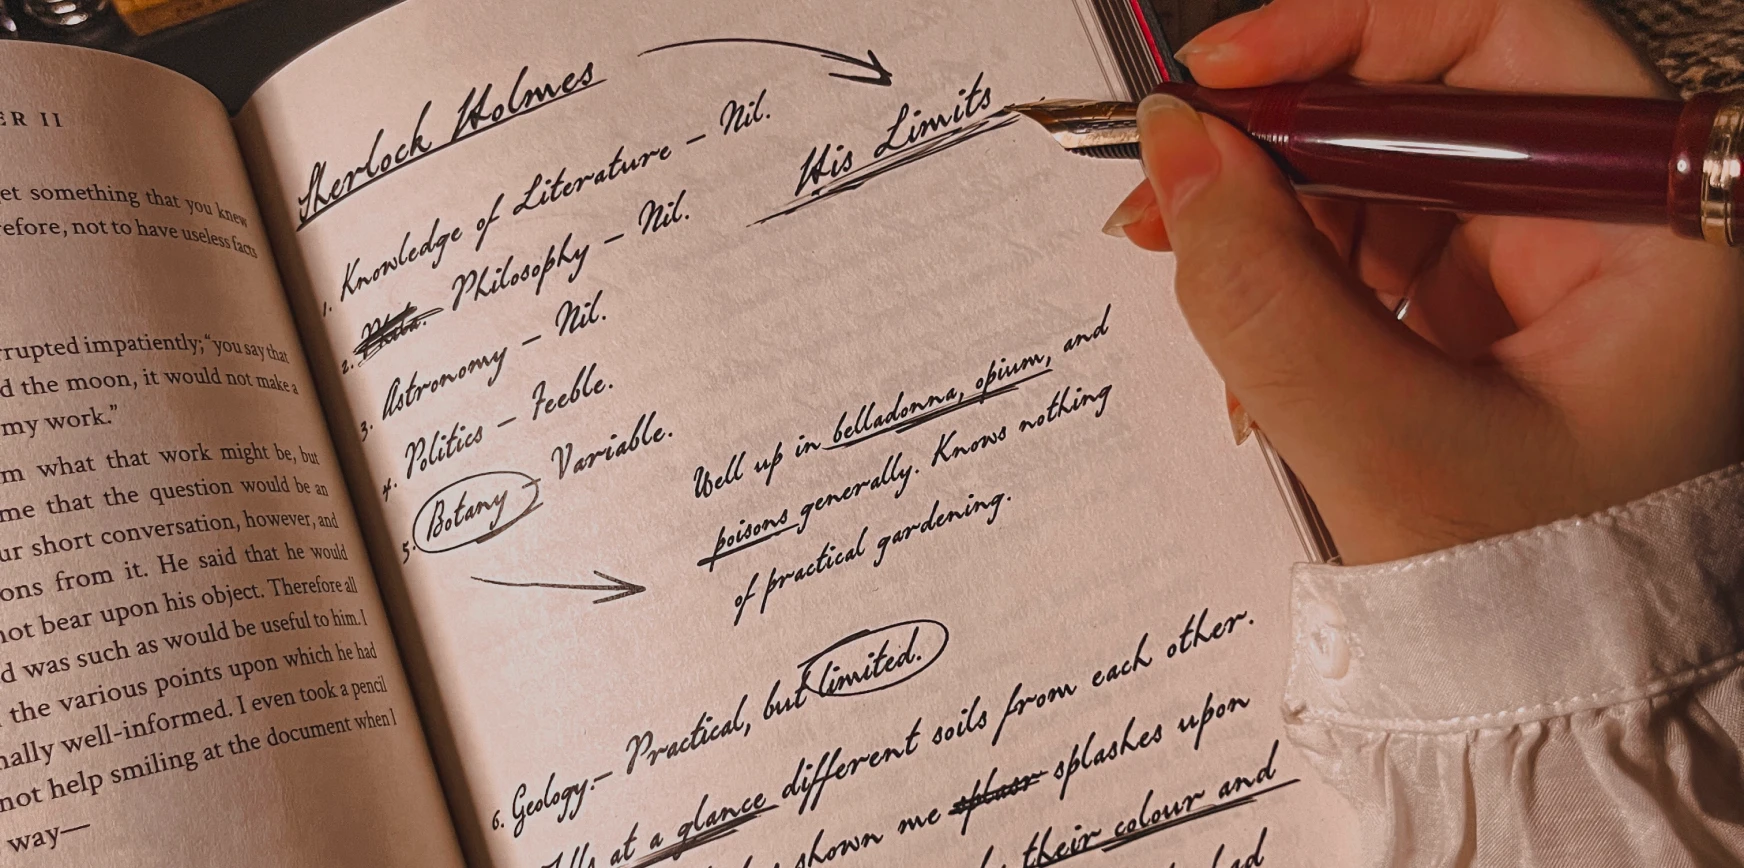 ER II
et something that you knew
refore, not to have useless facts
rrupted impatiently; “you say that
d the moon, it would not make a
my work.”
m what that work might be, but
me that the question would be an
ur short conversation, however, and
ons from it. He said that he would
not bear upon his object. Therefore all
d was such as would be useful to him. I
the various points upon which he had
nally well-informed. I even took a pencil
not help smiling at the document when I
way—
Sherlock Holmes
His Limits
1. Knowledge of Literature – Nil.
2. Philosophy – Nil.
3. Astronomy – Nil.
4. Politics – Feeble.
5. Botany – Variable.
Well up in belladonna, opium, and
poisons generally. Knows nothing
of practical gardening.
6. Geology.– Practical, but limited.
at a glance different soils from each other.
shown me splashes upon
their colour and